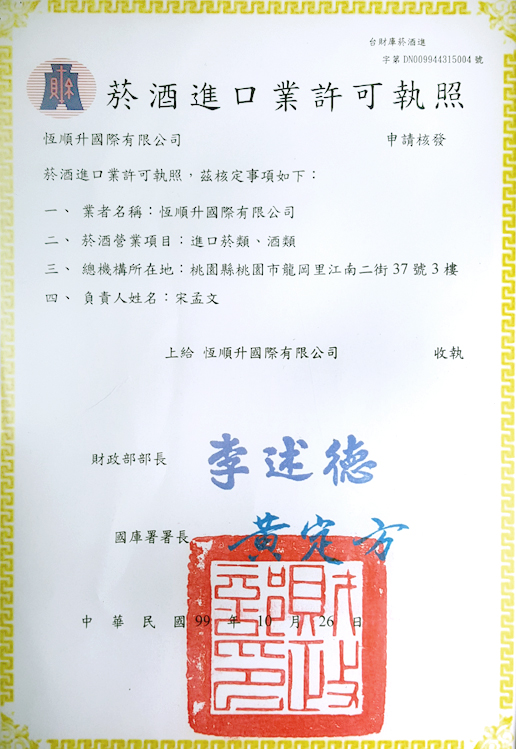 台財庫菸酒進
字第DN009944315004號
財
菸酒進口業許可執照
恆順升國際有限公司 申請核發
菸酒進口業許可執照，茲核定事項如下：
一、業者名稱：恆順升國際有限公司
二、菸酒營業項目：進口菸類、酒類
三、總機構所在地：桃園縣桃園市龍岡里江南二街37號3樓
四、負責人姓名：宋孟文
上給 恆順升國際有限公司 收執
財政部部長 李述德
國庫署署長 黃定方
中華民國99年10月26日
財政部印